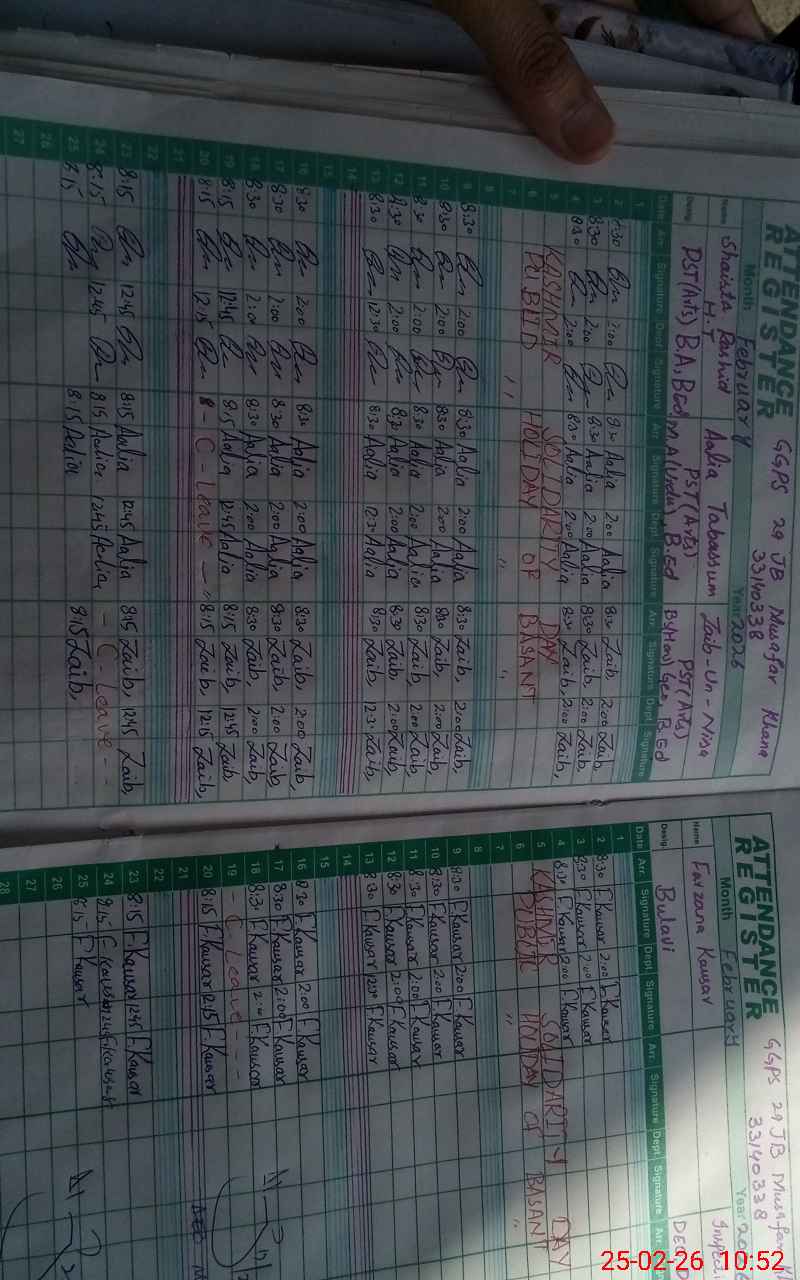 ATTENDANCE REGISTER
GGPS 29 JB Musafar Khana
33140338
Month February Year 2026
Name Shaista Rashid Aalia Tabassum Zaib-Un-Nisa
H.T PST(Arts) PST(Arts)
Desig: PST(Arts) B.A, B.Ed M.A(Urdu) B.Ed
Date Arr. Signature Dept Signature Arr. Signature Dept. Signature Arr. Signature Dept Signature
1
2 8:30 2:00 8:30 Aalia 2:00 Aalia 8:30 Zaib, 2:00 Zaib,
3 8:30 2:00 8:30 Aalia 2:00 Aalia 8:30 Zaib, 2:00 Zaib,
4 8:30 2:00 8:30 Aalia 2:00 Aalia 8:30 Zaib, 2:00 Zaib,
5 KASHMIR SOLIDARITY DAY
6 PUBLIC HOLIDAY OF BASANT
7 " " "
8
9 8:30 2:00 8:30 Aalia 2:00 Aalia 8:30 Zaib, 2:00 Zaib,
10 8:30 2:00 8:30 Aalia 2:00 Aalia 8:30 Zaib, 2:00 Zaib,
11 8:30 2:00 8:30 Aalia 2:00 Aalia 8:30 Zaib, 2:00 Zaib,
12 8:30 2:00 8:30 Aalia 2:00 Aalia 8:30 Zaib, 2:00 Zaib,
13 8:30 12:30 8:30 Aalia 12:30 Aalia 8:30 Zaib, 12:30 Zaib,
14
15
16 8:30 2:00 8:30 Aalia 2:00 Aalia 8:30 Zaib, 2:00 Zaib,
17 8:30 2:00 8:30 Aalia 2:00 Aalia 8:30 Zaib, 2:00 Zaib,
18 8:30 2:00 8:30 Aalia 2:00 Aalia 8:30 Zaib, 2:00 Zaib,
19 8:15 12:45 8:15 Aalia 12:45 Aalia 8:15 Zaib, 12:45 Zaib,
20 8:15 12:15 - C - Leave - 8:15 Zaib, 12:15 Zaib,
21
22
23 8:15 12:45 8:15 Aalia 12:45 Aalia 8:15 Zaib, 12:45 Zaib,
24 8:15 12:45 8:15 Aalia 12:45 Aalia - C - Leave - -
25 8:15 8:15 Aalia 8:15 Zaib,
26
27
ATTENDANCE REGISTER
GGPS 29 JB
33140338
Month February Year
Name Farzana Kausar
Desig: Bulavi
Date Arr. Signature Dept Signature Arr. Signature Dept Signature Arr.
1
2 8:30 F.Kausar 2:00 F.Kausar
3 8:30 F.Kausar 2:00 F.Kausar
4 8:30 F.Kausar 2:00 F.Kausar
5 KASHMIR SOLIDARITY DAY
6 PUBLIC HOLIDAY OF BASANT
7 " "
8
9 8:30 F.Kausar 2:00 F.Kausar
10 8:30 F.Kausar 2:00 F.Kausar
11 8:30 F.Kausar 2:00 F.Kausar
12 8:30 F.Kausar 2:00 F.Kausar
13 8:30 F.Kausar F.Kausar
14
15
16 8:30 F.Kausar 2:00 F.Kausar
17 8:30 F.Kausar 2:00 F.Kausar
18 8:30 F.Kausar 2:00 F.Kausar
19 - C Leave - - -
20 8:15 F.Kausar 12:15 F.Kausar
21
22
23 8:15 F.Kausar 12:45 F.Kausar
24 8:15 F.Kausar 12:45 F.Kausar
25 8:15 F.Kausar
26
27
28
25-02-26 10:52